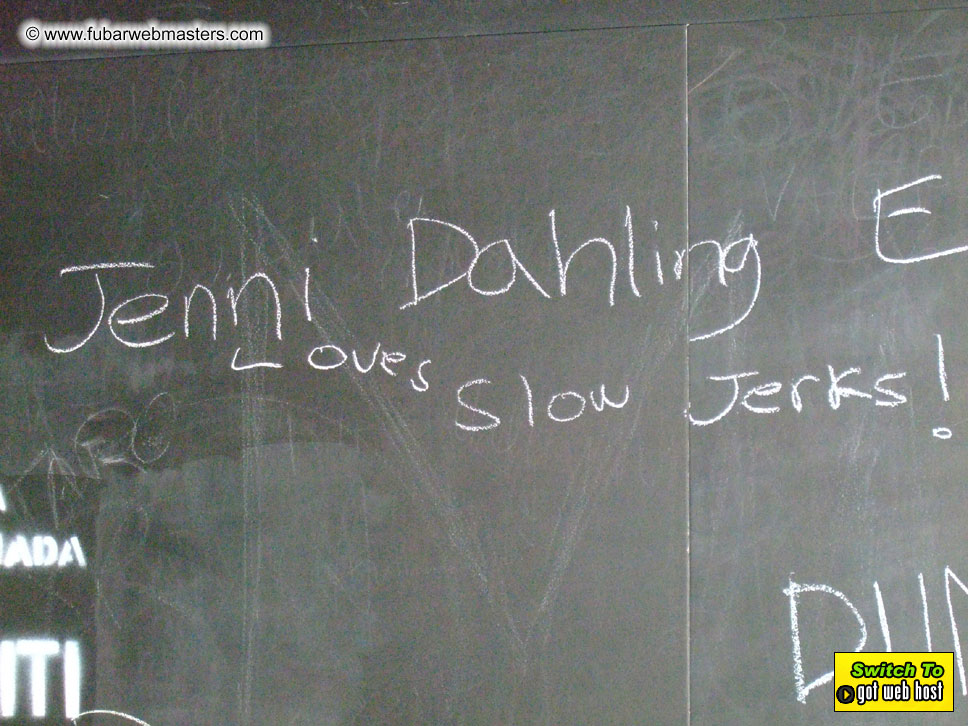 © www.fubarwebmasters.com
Jenni Dahling E
Loves Slow Jerks!
NADA
ITI
DUN
Switch To
got web host